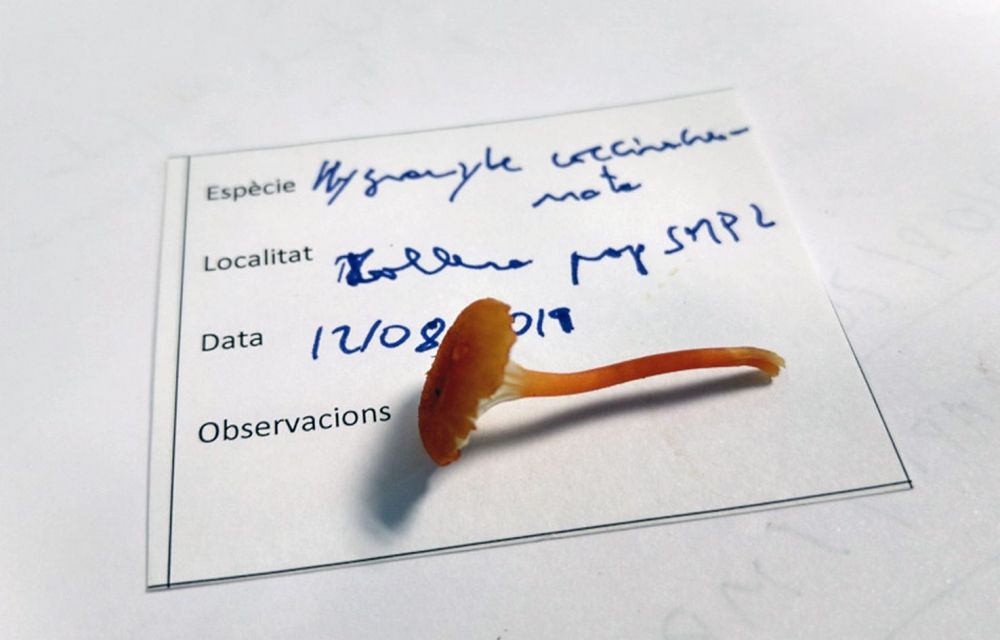 Espècie Hygrocybe coccineocre-
nata
Localitat Mollera prop SMP 2
Data 12/08 2019
Observacions